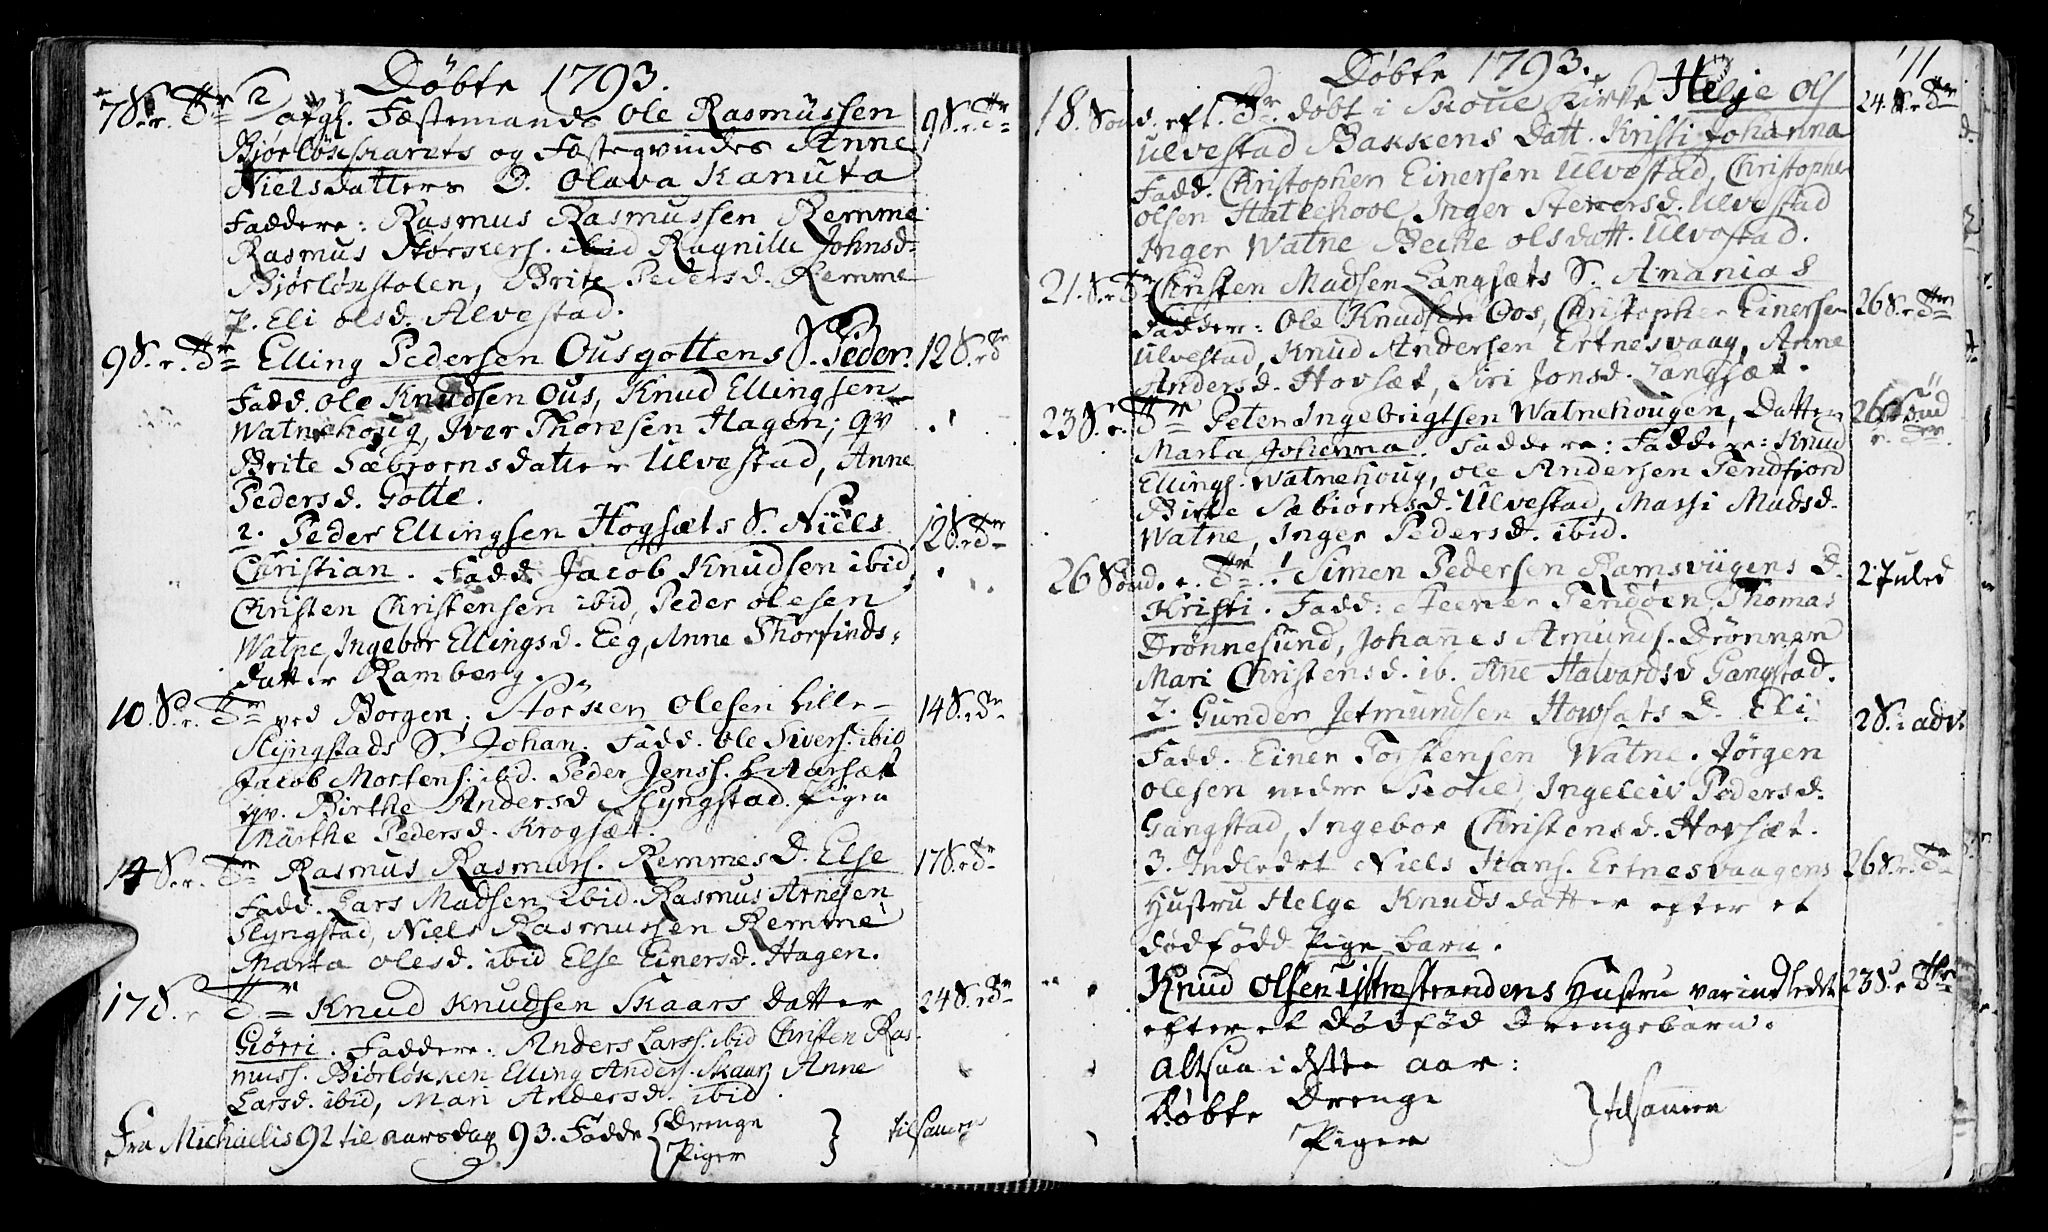 Döbte 1793.
7 S. r. Tr. 2 afg. Fæstemands Ole Rasmussen 9 S. r. Tr.
Bjørløkskarets og Fæsteqvindes Anne
Nielsdatters D. Olava Kanuta
Faddere: Rasmus Rasmussen Remme
Rasmus Størkers. ibid Ragnille Johnsd.
Bjørløkstolen, Brite Pedersd. Remme
P. Eli olsd. Alvestad.
9 S. r. Tr. Elling Pedersen Ousgottens S. Peder. 12 S. r. Tr.
Fadd. Ole Knudsen Ous, Knud Ellingsen
Watnehoug, Iver Thoresen Hagen; qv
Brite Sæbjørnsdatter Ulvestad, Anne
Pedersd. Gotte.
2. Peder Ellingsen Hogsæts S. Niels 12 S. r. Tr.
Christian. Fadd. Jacob Knudsen ibid,
Christen Christensen ibid, Peder olesen
Watne, Ingebor Ellingsd. Eeg, Anne Thorfinds-
datter Ramberg.
10. S. r. Tr. ved Borgen; Størker Olesen Lille- 14 S. r. Tr.
Slyngstads S. Johan. Fadd. Ole Sivers. ibid
Jacob Mortens. ibid. Peder Jenss.
qv. Birthe Andersd Slyngstad. Pigen
Marthe Pedersd. Krogsæt.
14 S. r. Tr. Rasmus Rasmuss. Remmes D. Else 17 S. r. Tr.
Fadd. Lars Madsen ibid. Rasmus Arnesen
Slyngstad, Niels Rasmussen Remme
Marta Olesd. ibid Else Einersd. Hagen.
17 S. r. Tr. Knud Knudsen Skaars datter 24 S. r. Tr.
Giørri. Faddere: Anders Larss. ibid Christen Ras-
muss. Bjørløkken Elling Anders. Skaar Anne
Larsd. ibid, Mari Andersd. ibid.
Fra Michaelis 92 til aarsdag 93. Fødde { Drenge } tilsamen
Piger
Döbte 1793. 71
18. Sönd. eft. Tr. döbt i Skoue Kirke Helje Ols 24. S. r. Tr.
Ulvestad Bakkens Datt. Kristi Johanna
Fadd. Christopher Einersen Ulvestad, Christopher
Olsen Hatlehool, Inger Stenersd. Ulvestad
Inger Watne Olsdatt. Ulvestad.
21. S. r. Tr. Christen Madsen Langsæts S. Ananias 26 S. r. Tr.
Fadder: Ole Knudsen Oos, Christopher Einersen
Ulvestad, Knud Andersen Ertnesvaag, Anne
Andersd. Hovsæt, Siri Jonsd. Langsæt.
23 S. r. Tr. Peter Ingebrigtsen Watnehougen, Datter 26 Sönd
Marta Johanna. Faddere: Faddere: Knud r. Tr.
Ellings. Watnehoug, Ole Andersen Tendfjord
Birte Sæbiørnsd. Ulvestad, Massi Madsd.
Watne, Inger Pedersd. ibid.
26 Sönd. r. Tr. 1 Simen Pedersen Ramsviigens D. 2 Juled
Kristi. Fadd: Steener Pendøen, Thomas
Drønnesund, Johannes Amunds. Drønnen
Mari Christensd. ib. Ane Halvardsd Gangstad.
2. Gunder Jetmundsen Howsæts D. Eli 2 S. i adv.
Fadd. Einer Torstensen Watne. Jørgen
Olesen nedre Skoue, Ingeleiv Pedersd.
Gangstad, Ingebor Christensd. Hovsæt.
3. Indledet Niels Hans. Ertnesvaagens 26 S. r. Tr.
Hustru Helge Knudsdatter efter et
dødfødd Pige barn.
Knud Olsen Ystrestrandens Hustru var indledet 23 S. r. Tr.
efter et Dødfød Drengebarn.
Altsaa i dette aar:
Døbte Drenge } tilsamen
Piger